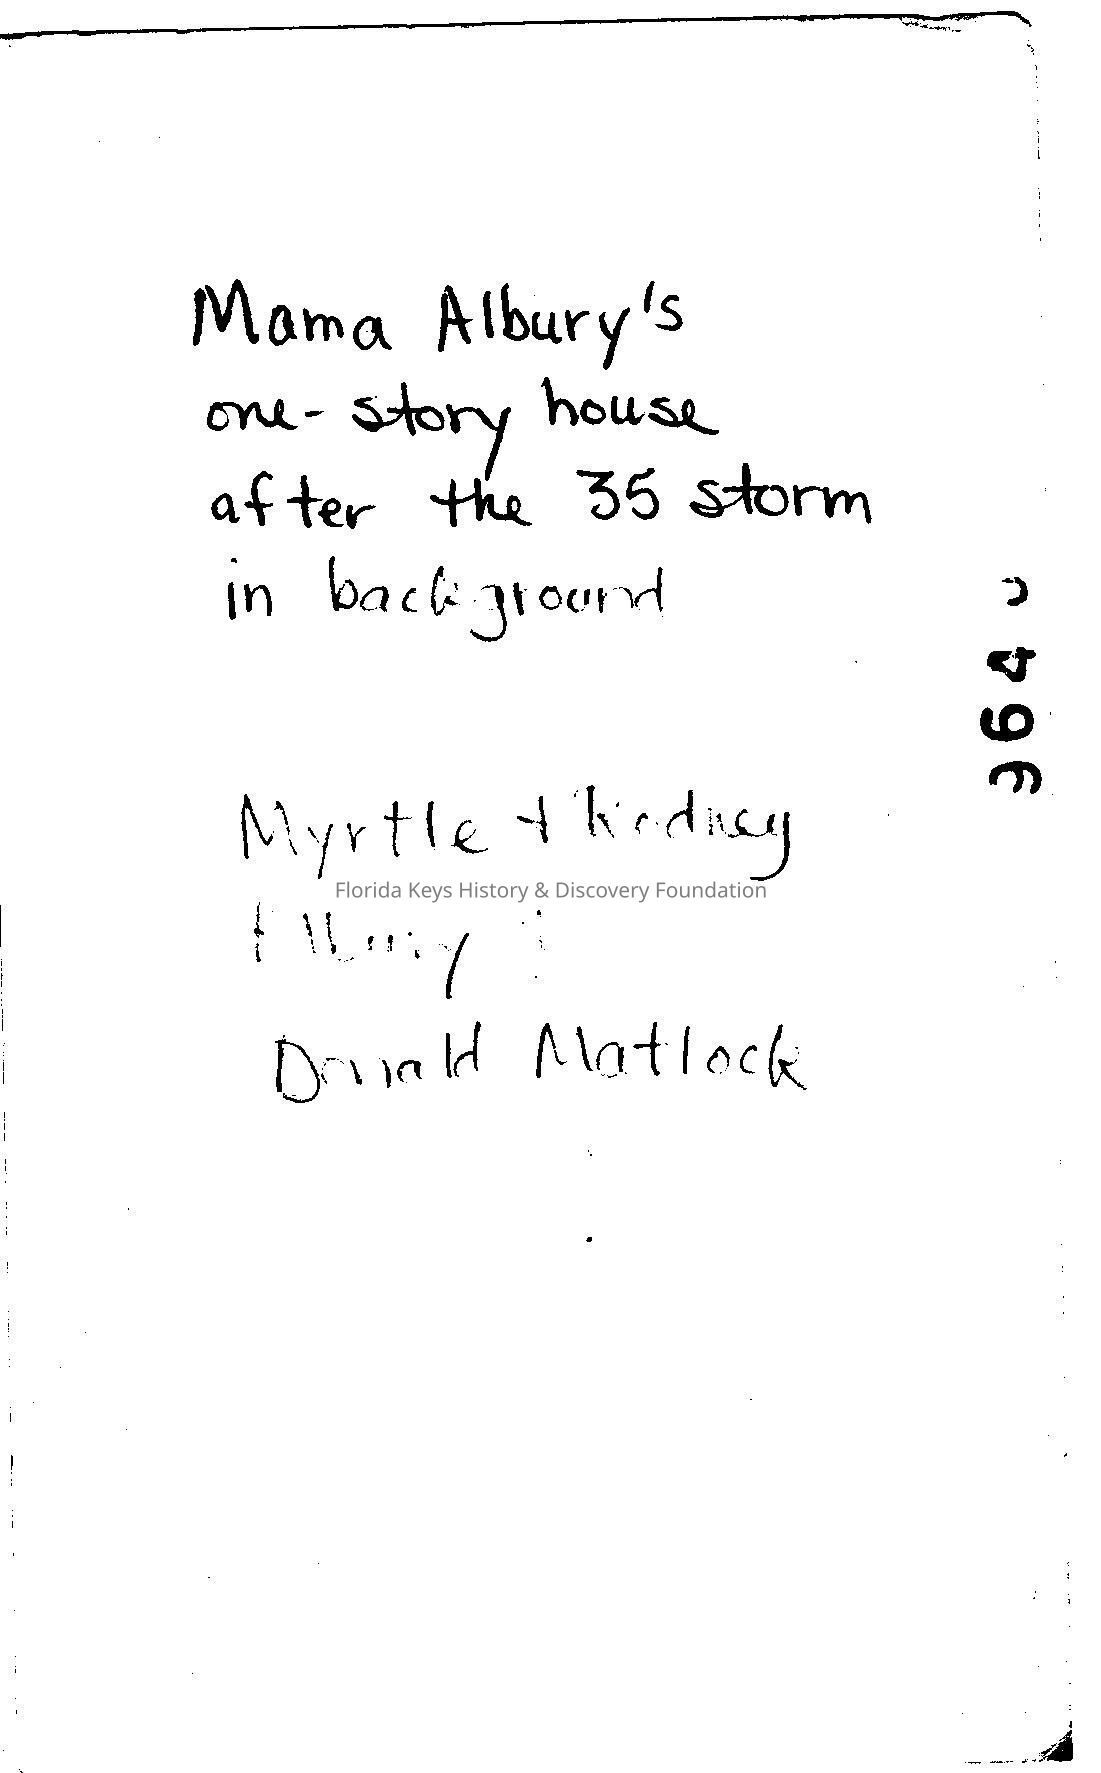 Mama Albury's
one-story house
after the 35 storm
in background
Myrtle + Rodney
Florida Keys History & Discovery Foundation
Albury
Donald Matlock
364